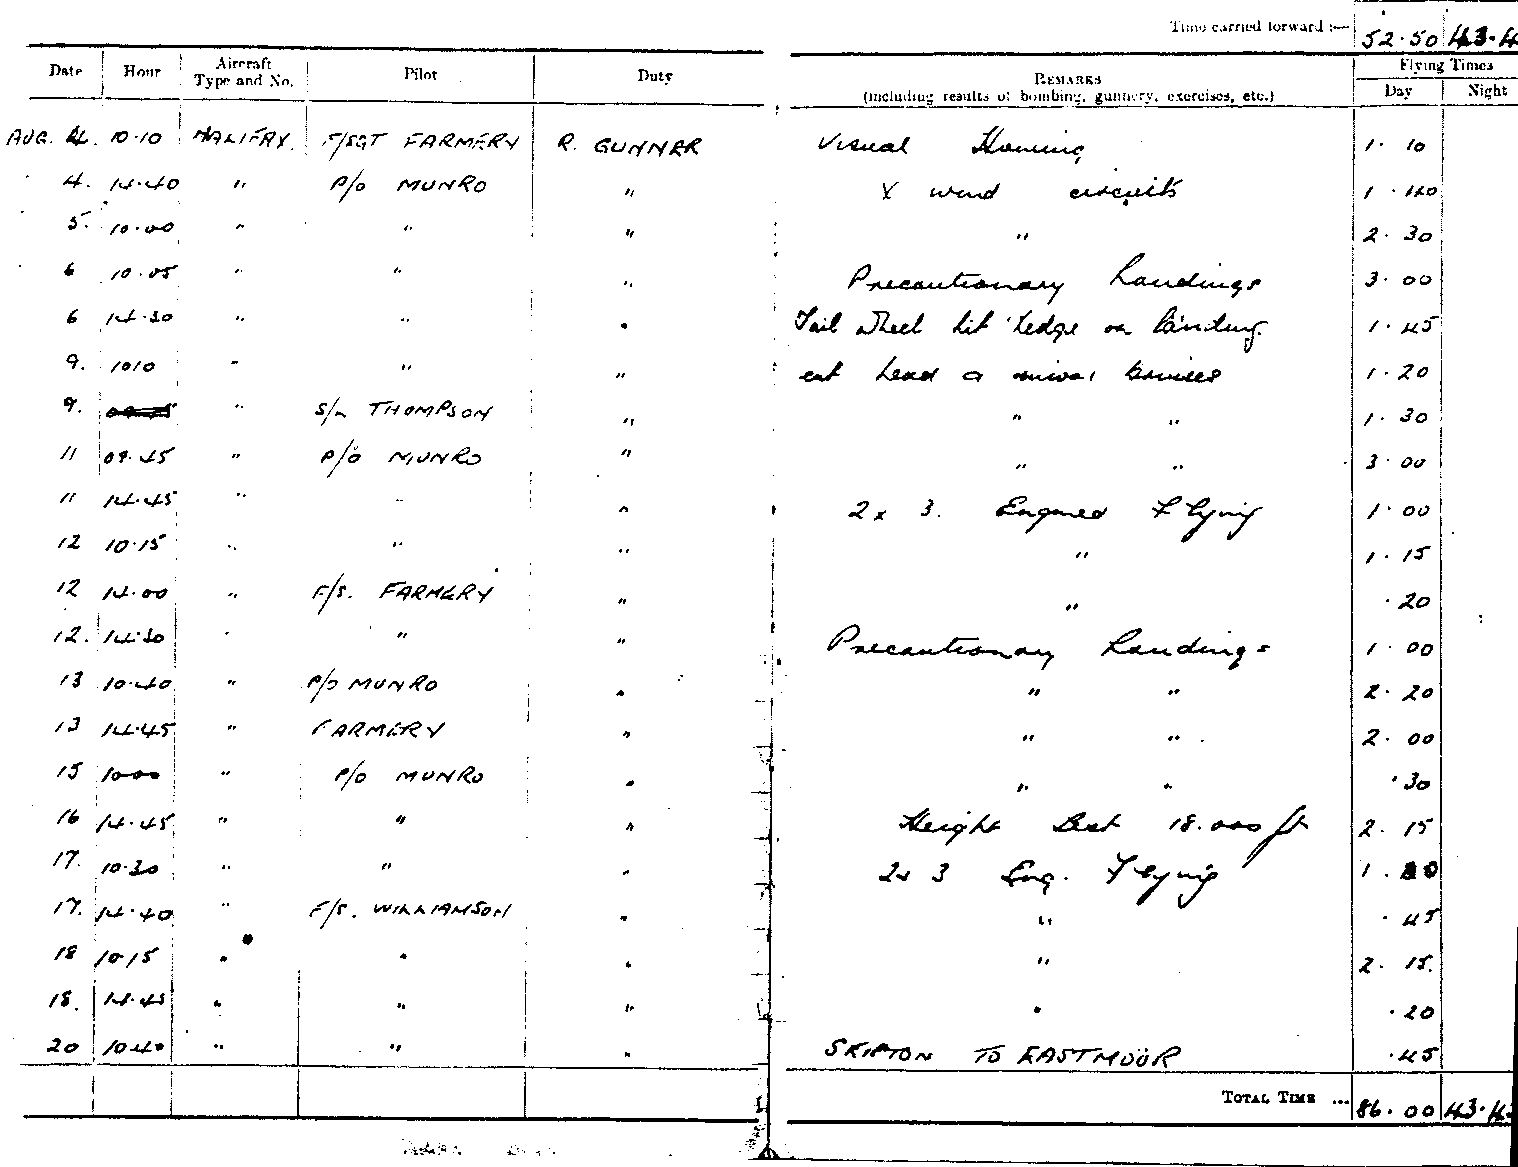 Time carried forward :— 52·50 43·4
Date Hour Aircraft Type and No. Pilot Duty REMARKS (including results of bombing, gunnery, exercises, etc.) Flying Times Day Night
AUG. 4. 10·10 HALIFAX. F/SGT FARMERY R. GUNNER Visual Homing 1· 10
4. 14·40 " P/O MUNRO " X wind circuits 1 ·40
5. 10·00 " " " " 2· 30
6 10·05 " " " Precautionary Landings 3· 00
6 14·30 " " " Tail wheel hit hedge on landing. 1·45
9. 1010 " " " cut head & minor bruises 1·20
9. " S/L THOMPSON " " " 1· 30
11 09·45 " P/O MUNRO " " " 3· 00
11 14·45 " " " 2 x 3. Engined Flying 1· 00
12 10·15 " " " " 1· 15
12 14·00 " F/S. FARMERY " " ·20
12. 14·30 " " " Precautionary Landings 1· 00
13 10·40 " P/O MUNRO " " " 2· 20
13 14·45 " FARMERY " " " 2· 00
15 1000 " P/O MUNRO " " " ·30
16 14·45 " " " Height Test 18.000 ft 2· 15
17. 10·30 " " " 2x 3 Eng. Flying 1.
17. 14·40 " F/S. WILLIAMSON " " ·45
18 10·15 " " " " 2· 15.
18. 14·45 " " " " ·20
20 10·40 " " " SKIPTON TO EASTMOOR ·45
TOTAL TIME ... 86·00 43·4